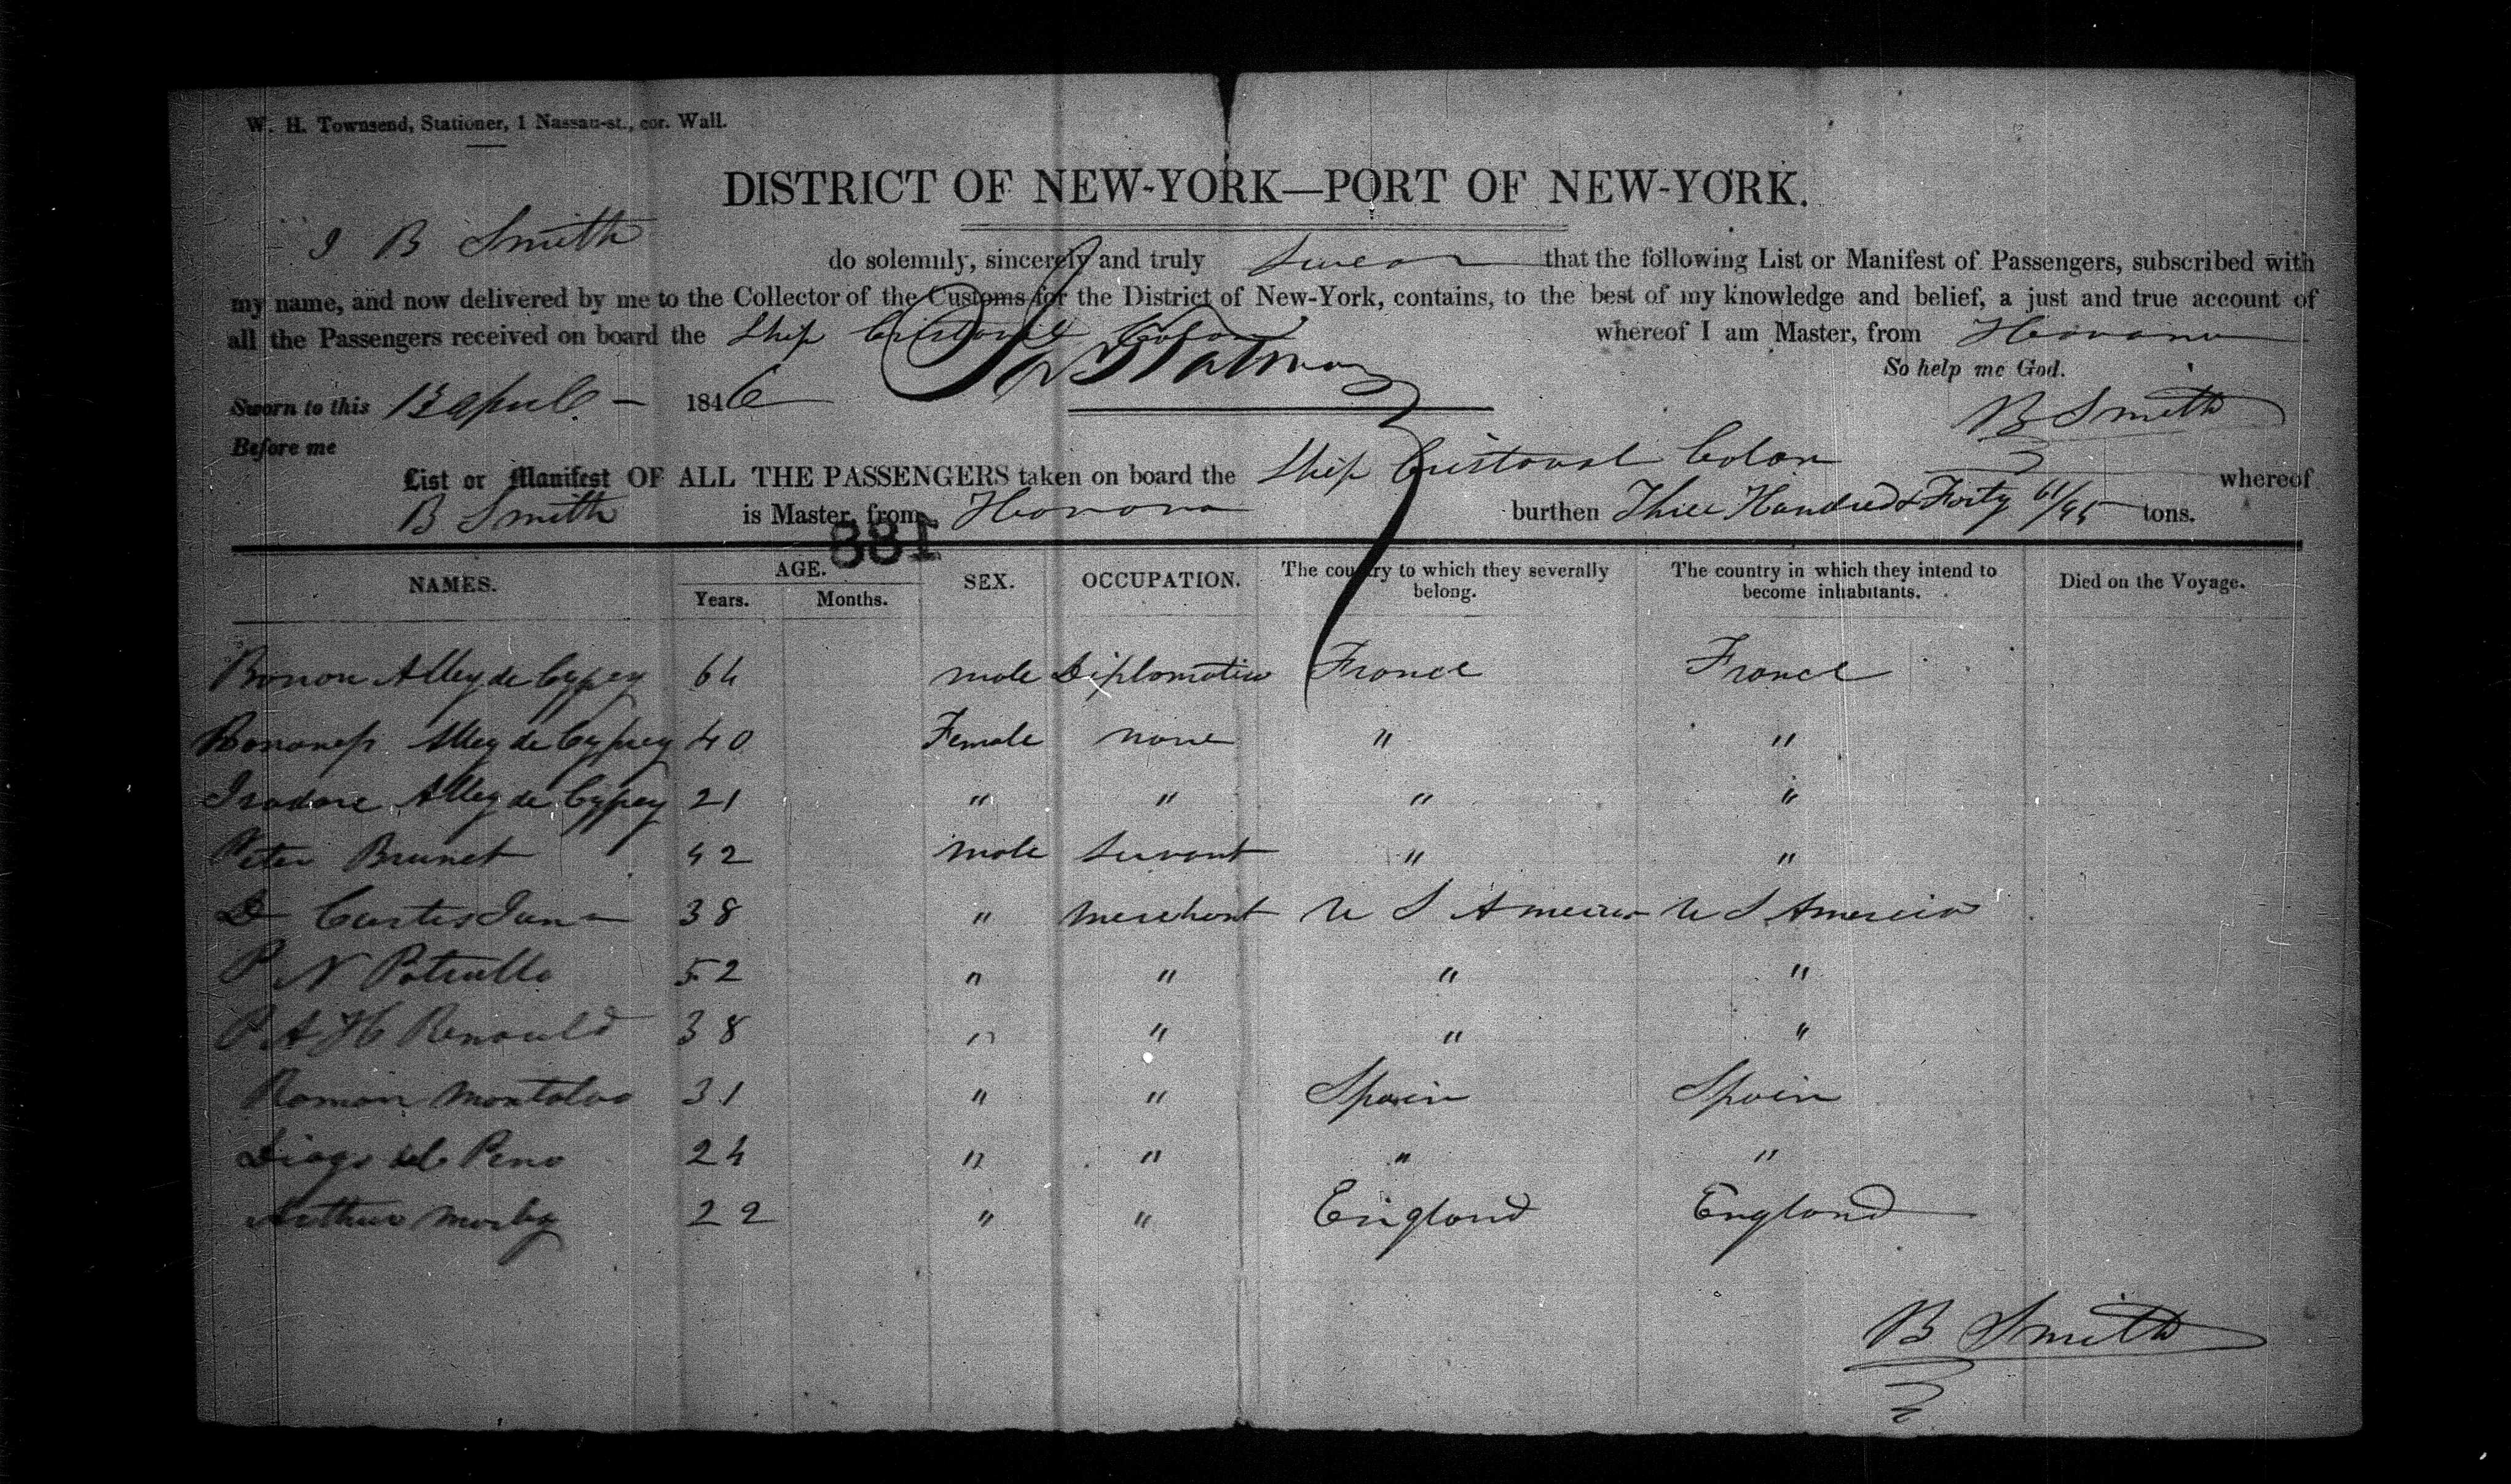 W. H. Townsend, Stationer, 1 Nassau-st., cor. Wall.
DISTRICT OF NEW-YORK—PORT OF NEW-YORK.
I B Smith do solemnly, sincerely and truly Swear that the following List or Manifest of Passengers, subscribed with
my name, and now delivered by me to the Collector of the Customs for the District of New-York, contains, to the best of my knowledge and belief, a just and true account of
all the Passengers received on board the Ship Cristoval Colon whereof I am Master, from Havana
So help me God.
Sworn to this 13 April 1846 B Smith
Before me
List or Manifest OF ALL THE PASSENGERS taken on board the Ship Cristoval Colon whereof
B Smith is Master, from Havana burthen Three Hundred & Forty 61/95 tons.
881
NAMES. AGE. SEX. OCCUPATION. The country to which they severally belong. The country in which they intend to become inhabitants. Died on the Voyage.
Years. Months.
Baron Alley de Cyprey 64 male France France
Baroness Alley de Cyprey 40 Female none " "
Isadore Alley de Cyprey 21 " " " "
Peter Brunet 42 male Servant " "
D Curtis 38 " merchant U S America U S America
P N 52 " " " "
P A H Renauld 38 " " " "
Ramon Montalvo 31 " " Spain Spain
Diago de Pena 24 " " " "
Arthur 22 " " England England
B Smith